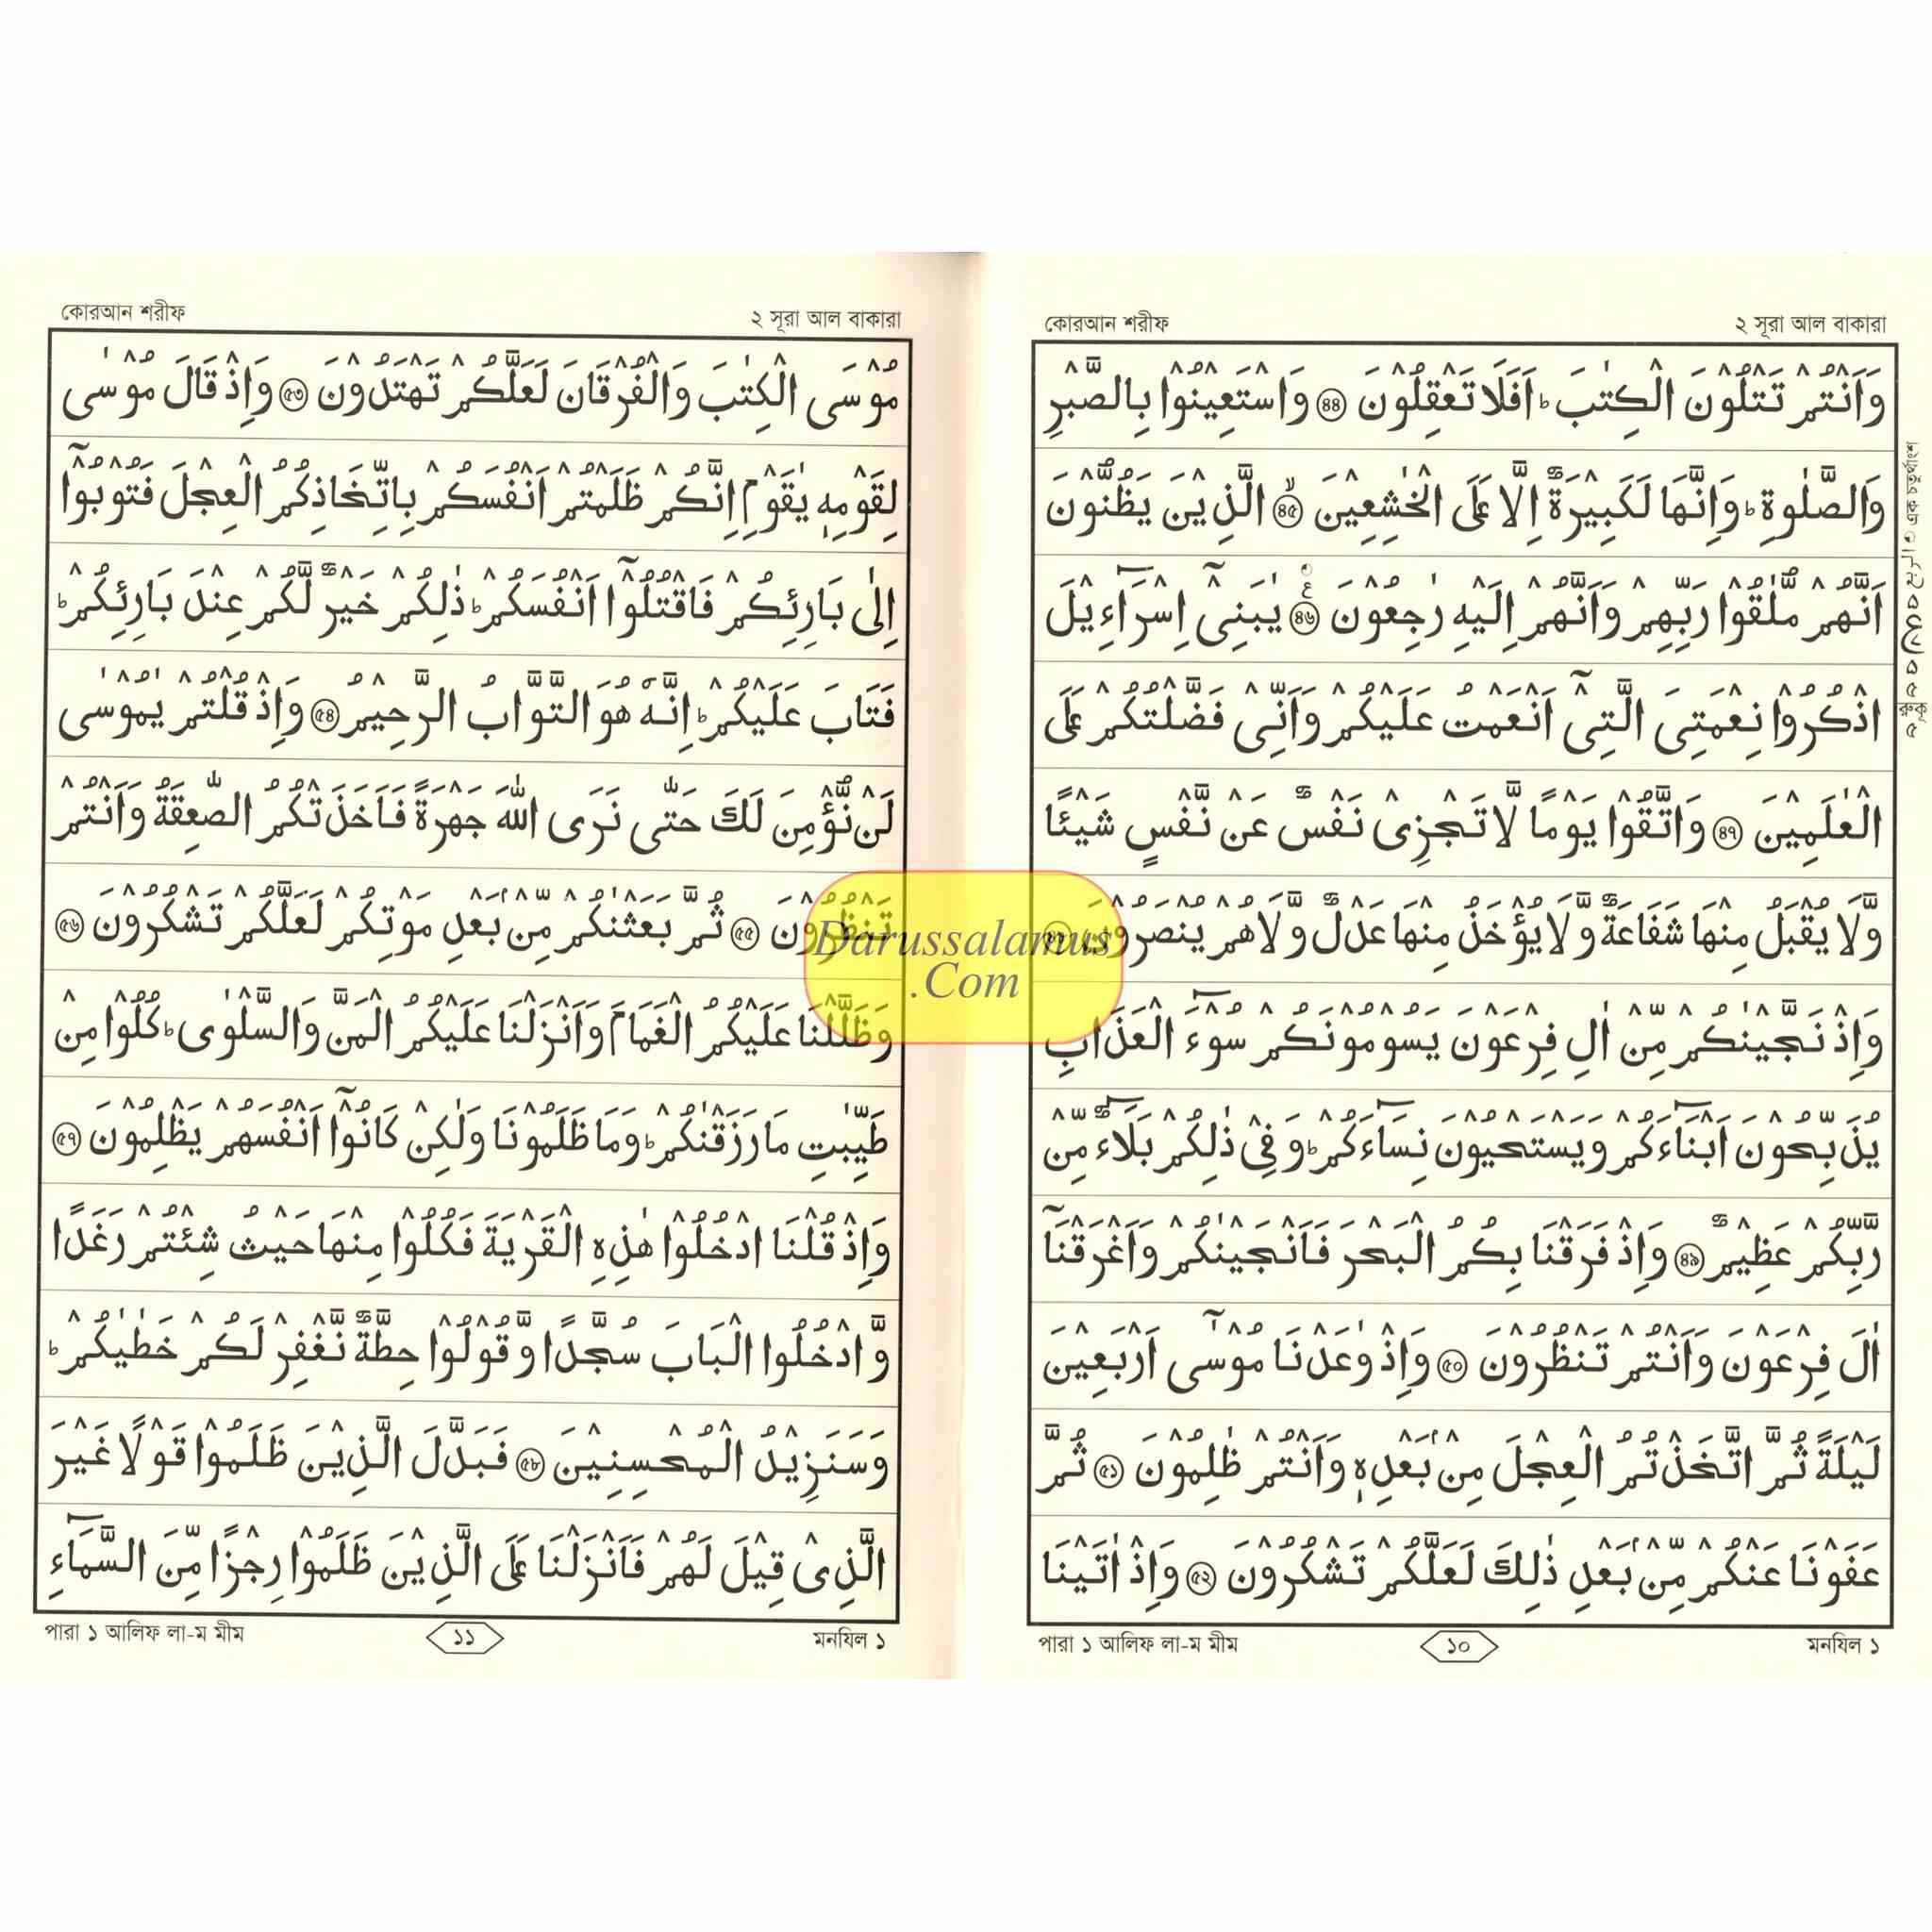 ২ সূরা আল বাকারা
কোরআন শরীফ
وَاَنْتُمْ تَتْلُوْنَ الْكِتٰبَ ؕ اَفَلَا تَعْقِلُوْنَ ৪৪ وَاسْتَعِيْنُوْا بِالصَّبْرِ
وَالصَّلٰوةِ ؕ وَاِنَّهَا لَكَبِيْرَةٌ اِلَّا عَلَى الْخٰشِعِيْنَ ৪৫ الَّذِيْنَ يَظُنُّوْنَ
اَنَّهُمْ مُّلٰقُوْا رَبِّهِمْ وَاَنَّهُمْ اِلَيْهِ رٰجِعُوْنَ ৪৬ يٰبَنِىْٓ اِسْرَآءِيْلَ
اذْكُرُوْا نِعْمَتِىَ الَّتِىْٓ اَنْعَمْتُ عَلَيْكُمْ وَاَنِّىْ فَضَّلْتُكُمْ عَلَى
الْعٰلَمِيْنَ ৪৭ وَاتَّقُوْا يَوْمًا لَّا تَجْزِىْ نَفْسٌ عَنْ نَّفْسٍ شَيْئًا
وَّلَا يُقْبَلُ مِنْهَا شَفَاعَةٌ وَّلَا يُؤْخَذُ مِنْهَا عَدْلٌ وَّلَا هُمْ يُنْصَرُوْنَ
وَاِذْ نَجَّيْنٰكُمْ مِّنْ اٰلِ فِرْعَوْنَ يَسُوْمُوْنَكُمْ سُوْٓءَ الْعَذَابِ
يُذَبِّحُوْنَ اَبْنَآءَكُمْ وَيَسْتَحْيُوْنَ نِسَآءَكُمْ ؕ وَفِىْ ذٰلِكُمْ بَلَآءٌ مِّنْ
رَّبِّكُمْ عَظِيْمٌ ৪৯ وَاِذْ فَرَقْنَا بِكُمُ الْبَحْرَ فَاَنْجَيْنٰكُمْ وَاَغْرَقْنَآ
اٰلَ فِرْعَوْنَ وَاَنْتُمْ تَنْظُرُوْنَ ৫০ وَاِذْ وٰعَدْنَا مُوْسٰٓى اَرْبَعِيْنَ
لَيْلَةً ثُمَّ اتَّخَذْتُمُ الْعِجْلَ مِنْۢ بَعْدِهٖ وَاَنْتُمْ ظٰلِمُوْنَ ৫১ ثُمَّ
عَفَوْنَا عَنْكُمْ مِّنْۢ بَعْدِ ذٰلِكَ لَعَلَّكُمْ تَشْكُرُوْنَ ৫২ وَاِذْ اٰتَيْنَا
মনযিল ১
১০
পারা ১ আলিফ লা-ম মীম
২ সূরা আল বাকারা
কোরআন শরীফ
مُوْسَى الْكِتٰبَ وَالْفُرْقَانَ لَعَلَّكُمْ تَهْتَدُوْنَ ৫৩ وَاِذْ قَالَ مُوْسٰى
لِقَوْمِهٖ يٰقَوْمِ اِنَّكُمْ ظَلَمْتُمْ اَنْفُسَكُمْ بِاتِّخَاذِكُمُ الْعِجْلَ فَتُوْبُوْٓا
اِلٰى بَارِئِكُمْ فَاقْتُلُوْٓا اَنْفُسَكُمْ ؕ ذٰلِكُمْ خَيْرٌ لَّكُمْ عِنْدَ بَارِئِكُمْ ؕ
فَتَابَ عَلَيْكُمْ ؕ اِنَّهٗ هُوَ التَّوَّابُ الرَّحِيْمُ ৫৪ وَاِذْ قُلْتُمْ يٰمُوْسٰى
لَنْ نُّؤْمِنَ لَكَ حَتّٰى نَرَى اللّٰهَ جَهْرَةً فَاَخَذَتْكُمُ الصّٰعِقَةُ وَاَنْتُمْ
تَنْظُرُوْنَ ৫৫ ثُمَّ بَعَثْنٰكُمْ مِّنْۢ بَعْدِ مَوْتِكُمْ لَعَلَّكُمْ تَشْكُرُوْنَ ৫৬
وَظَلَّلْنَا عَلَيْكُمُ الْغَمَامَ وَاَنْزَلْنَا عَلَيْكُمُ الْمَنَّ وَالسَّلْوٰى ؕ كُلُوْا مِنْ
طَيِّبٰتِ مَا رَزَقْنٰكُمْ ؕ وَمَا ظَلَمُوْنَا وَلٰكِنْ كَانُوْٓا اَنْفُسَهُمْ يَظْلِمُوْنَ ৫৭
وَاِذْ قُلْنَا ادْخُلُوْا هٰذِهِ الْقَرْيَةَ فَكُلُوْا مِنْهَا حَيْثُ شِئْتُمْ رَغَدًا
وَّادْخُلُوا الْبَابَ سُجَّدًا وَّقُوْلُوْا حِطَّةٌ نَّغْفِرْ لَكُمْ خَطٰيٰكُمْ ؕ
وَسَنَزِيْدُ الْمُحْسِنِيْنَ ৫৮ فَبَدَّلَ الَّذِيْنَ ظَلَمُوْا قَوْلًا غَيْرَ
الَّذِىْ قِيْلَ لَهُمْ فَاَنْزَلْنَا عَلَى الَّذِيْنَ ظَلَمُوْا رِجْزًا مِّنَ السَّمَآءِ
মনযিল ১
১১
পারা ১ আলিফ লা-ম মীম
Darussalamus
.Com